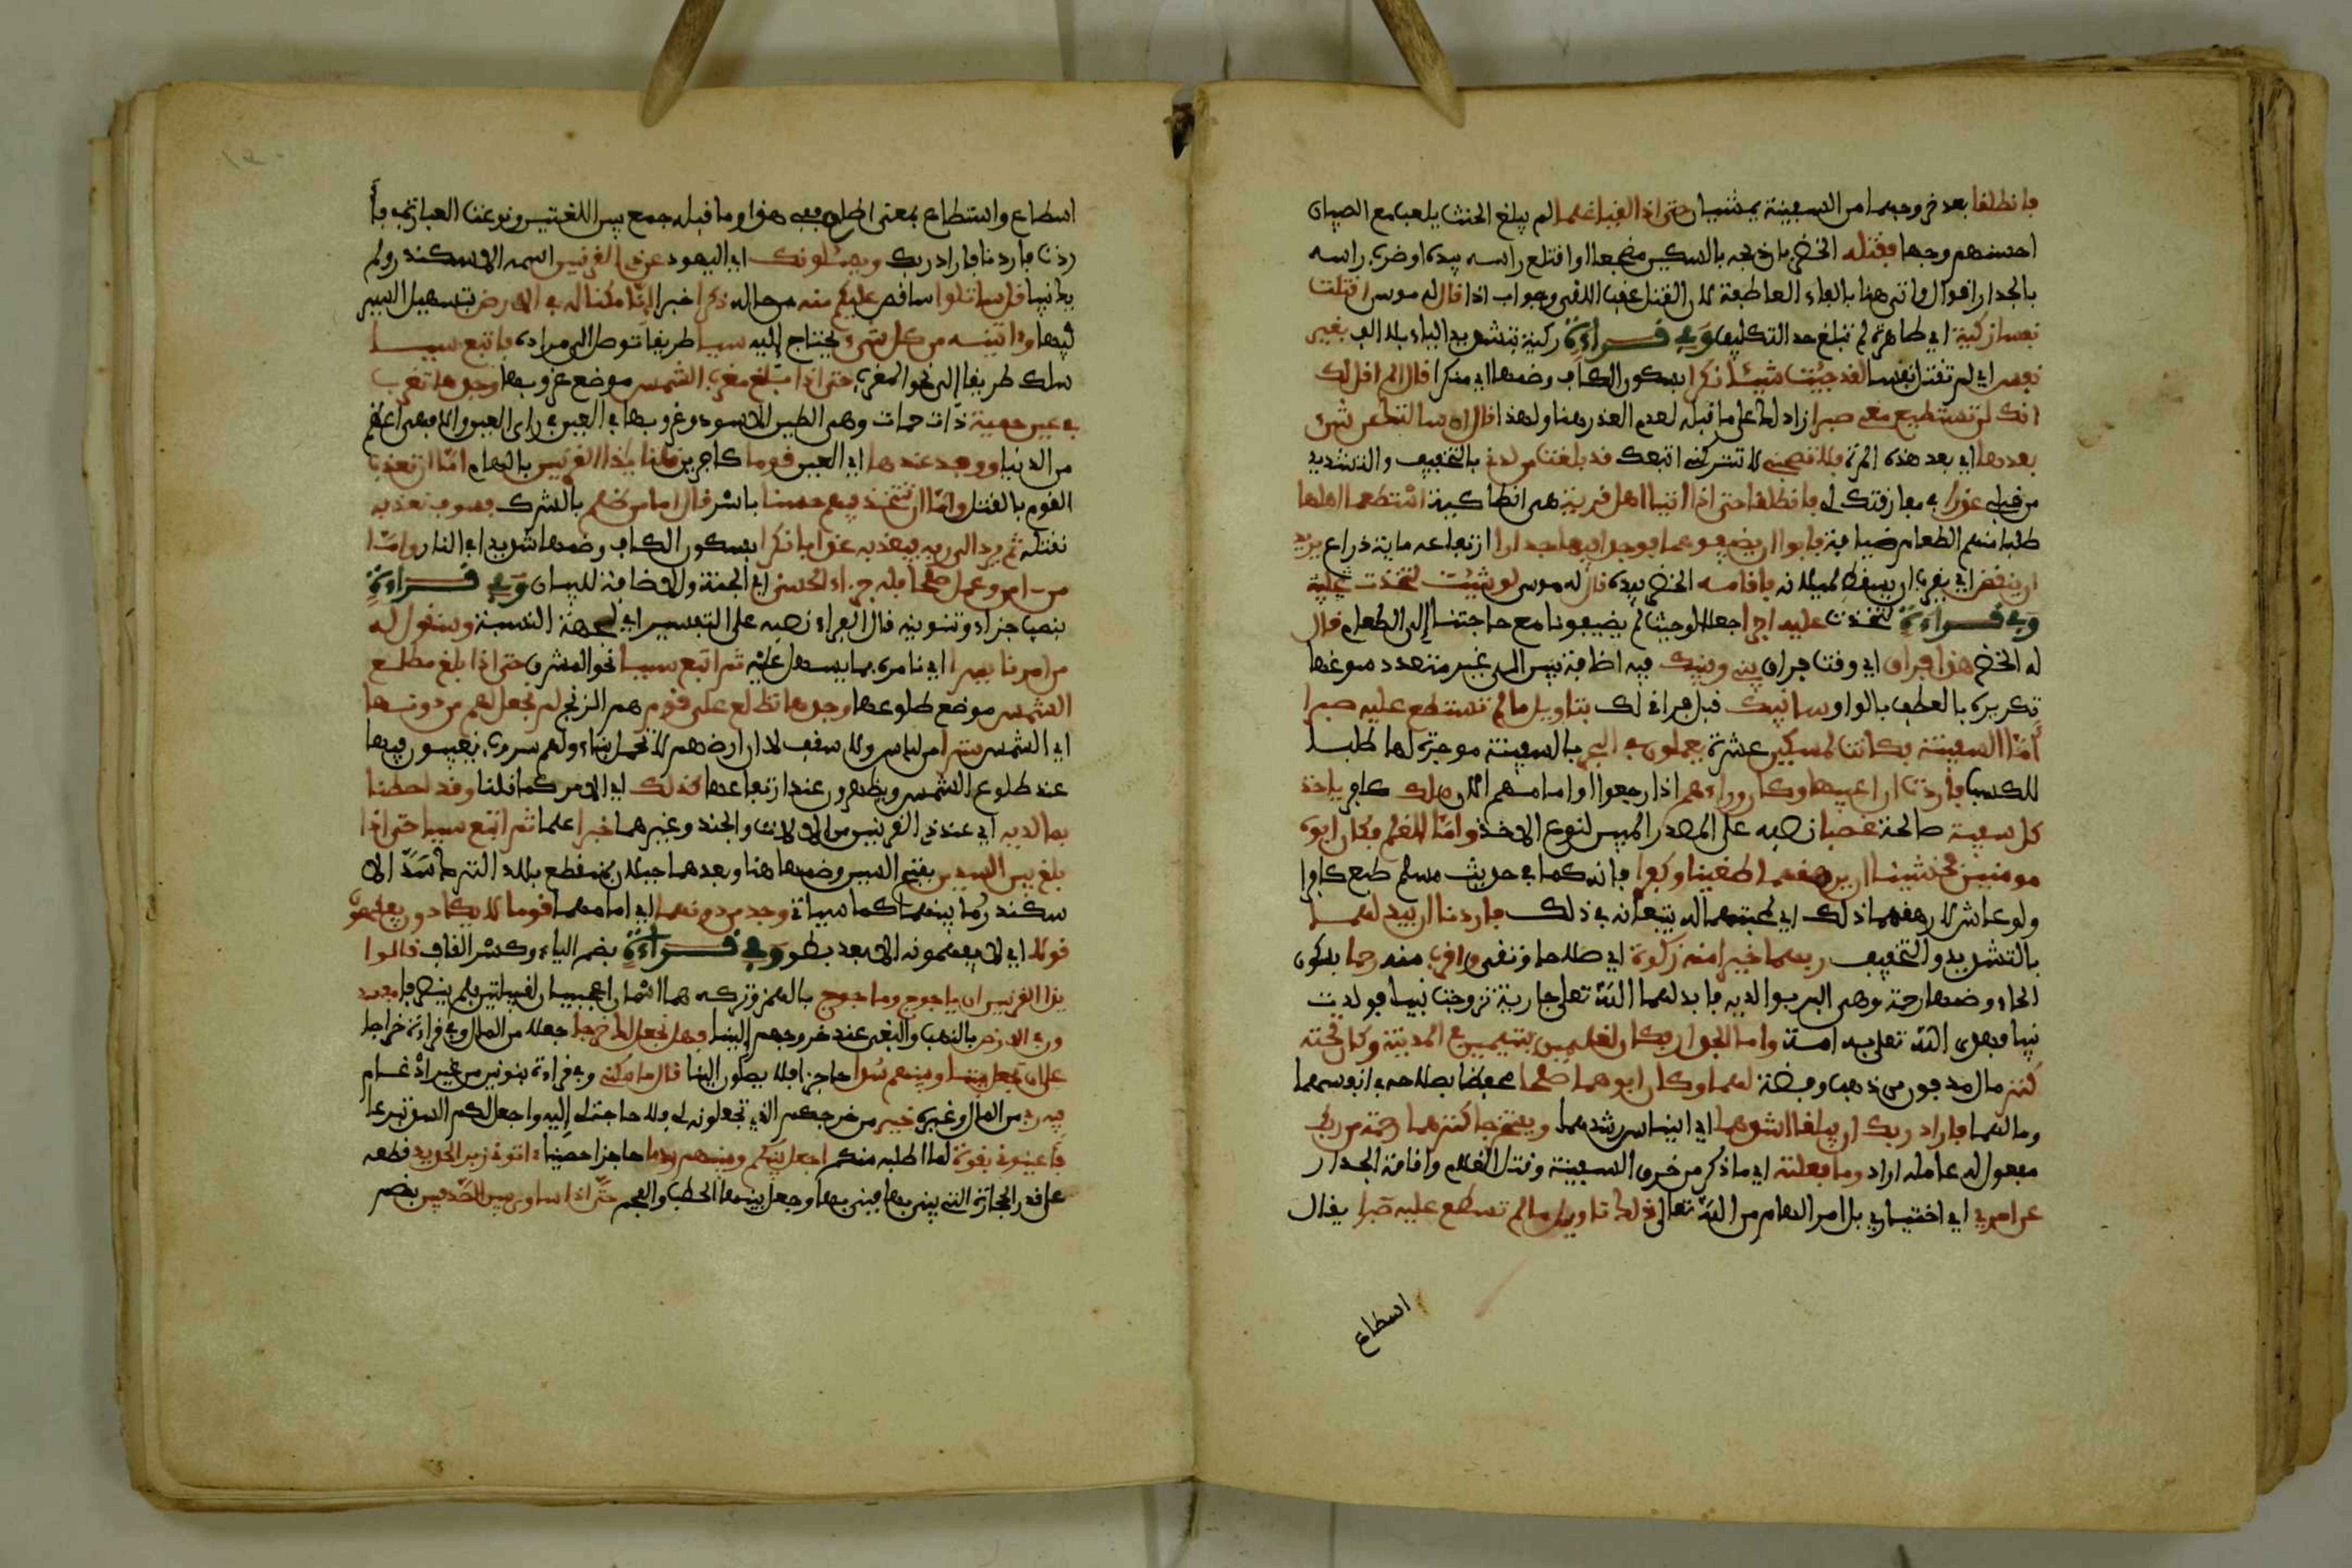 فانطلقا بعد خروجهما من السفينة يمشيان حتى اذا لقيا غلما لم يبلغ الحنث يلعب مع الصبيان
احسنهم وجها فقتله الخضر بان ذبحه بالسكين مضجعا او اقتلع راسه بيده او ضرب راسه
بالجدار اقوال واتى هنا بالفاء العاطفة لان القتل عقب اللقي وجواب اذا قال له موسى اقتلت
نفسا زكية اي طاهرة لم تبلغ حد التكليف وفي قراءة زكية بتشديد الياء بلا الف بغير
نفس اي لم تقتل نفسا لقد جئت شيئا نكرا بسكون الكاف وضمها اي منكرا قال الم اقل لك
انك لن تستطيع معي صبرا زاد لك على ما قبله لعدم العذر هنا ولهذا قال ان سالتك عن شيء
بعدها اي بعد هذه المرة فلا تصحبني لا تتركني اتبعك قد بلغت من لدني بالتخفيف والتشديد
من قبلي عذرا في مفارقتك لي فانطلقا حتى اذا اتيا اهل قرية هي انطاكية استطعما اهلها
طلبا منهم الطعام ضيافة فابوا ان يضيفوهما فوجدا فيها جدارا ارتفاعه مائة ذراع يريد
ان ينقض اي يقرب ان يسقط لميلانه فاقامه الخضر بيده قال له موسى لو شئت لتخذت عليه
وفي قراءة لتخذت عليه اجرا جعلا لو حيث لم يضيفونا مع حاجتنا إلى الطعام قال
له الخضر هذا فراق اي وقت فراق بيني وبينك فيه اضافة بين الى غير متعدد سوغها
تكريره بالعطف بالواو سانبيك قبل فراقي لك بتاويل ما لم تستطع عليه صبرا
أما السفينة فكانت لمسكين عشرة يعملون في البحر بالسفينة موجرة لها طلبا
للكسب فاردت ان اعيبها وكان وراءهم اذا رجعوا او امامهم الان ملك كافر ياخذ
كل سفينة صالحة غصبا نصبه على المصدر المبين لنوع الاخذ واما الغلم فكان ابوه
مومنين فخشينا ان يرهقهما طغينا وكفرا فانه كما في حديث مسلم طبع كافرا
ولو عاش لارهقهما ذلك اي لمحبتهما له يتبعانه في ذلك فاردنا ان يبدلهما
بالتشديد والتخفيف ربهما خيرا منه زكوة اي صلاحا وتقى واقرب منه رحما بسكون
الحاء وضمها رحمة وهي البر بوالديه فابدلهما الله تعلى جارية تزوجت نبيا فولدت
نبيا فهدى الله تعلى به امة واما الجدار فكان لغلمين يتيمين في المدينة وكان تحته
كنز مال مدفون من ذهب وفضة لهما وكان ابوهما صلحا فحفظا بصلاحه في انفسهما
ومالهما فاراد ربك ان يبلغا اشدهما اي ايناس رشدهما ويستخرجا كنزهما رحمة من ربك
مفعول له عامله اراد وما فعلته اي ما ذكر من خرق السفينة وقتل الغلام واقامة الجدار
عن امري اي اختياري بل امر الهام من الله تعالى ذلك تاويل ما لم تسطع عليه صبرا يقال
اسطاع
اسطاع واستطاع بمعنى اطاق ففي هذا وما قبله جمع بين اللغتين ونوعت العبارة في فأ
ردت فاردنا فاراد ربك ويسئلونك اي اليهود عن ذي القرنين اسمه الاسكندر ولم
يك نبيا قل ساتلوا ساقص عليكم منه من حاله ذكرا خبرا إنا مكنا له في الارض بتسهيل السير
فيها واتينه من كل شيء يحتاج إليه سببا طريقا توصل الى مراده فاتبع سببا
سلك طريقا إلى نحو المغرب حتى اذا بلغ مغرب الشمس موضع غروبها وجدها تغرب
في عين حمية ذات حمأت وهي الطين الاسود وغروبها في العين في راي العين والا فهي اعظم
من الدنيا ووجد عندها اي العين قوما كافرين قلنا يذا القرنين بالهام اما ان تعذب
القوم بالقتل واما ان تتخذ فيهم حسنا باسر قال اما من ظلم بالشرك فسوف نعذبه
نقتله ثم يرد الى ربه فيعذبه عذابا نكرا بسكون الكاف وضمها شديدا في النار واما
من امن وعمل صلحا فله جزاء الحسنى اي الجنة والاضافة للبيان وفي قراءة
بنصب جزاء وتنوينه قال الفراء نصبه على التفسير اي لجهة النسبة وسنقول له
من امرنا يسرا اي نامره بما يسهل عليه ثم اتبع سببا نحو المشرق حتى اذا بلغ مطلع
الشمس موضع طلوعها وجدها تطلع على قوم هم الزنج لم نجعل لهم من دونها
اي الشمس سترا من لباس ولا سقف لان ارضهم لا تحمل بناء ولهم سروب يغيبون فيها
عند طلوع الشمس ويظهرون عند ارتفاعها كذلك اي الامر كما قلنا وقد احطنا
بما لديه اي عند ذي القرنين من الالات والجند وغيرهما خبرا علما ثم اتبع سببا حتى اذا
بلغ بين السدين بفتح السين وضمها هنا وبعدهما جبلان بمنقطع بلاد الترك سد الا
سكندر ما بينهما كما سياتي وجد من دونهما اي امامهما قوما لا يكادون يفقهون
قولا اي لا يفهمونه الا بعد بطء وفي قراءة بضم الياء وكسر القاف قالوا
يذا القرنين ان ياجوج وماجوج بالهمز وتركه هما اسمان اعجميان لقبيلتين فلم ينصرفا مفسدون
في الارض بالنهب والبغي عند خروجهم إلينا فهل نجعل لك خرجا جعلا من المال وفي قراءة خراجا
على ان تجعل بيننا وبينهم سدا حاجزا فلا يصلون إلينا قال ما مكني وفي قراءة بنونين من غير ادغام
فيه ربي من المال وغيره خير من خرجكم الذي تجعلونه لي فلا حاجة لي إليه واجعل لكم السد تبرعا
فأعينوني بقوة لما اطلبه منكم اجعل بينكم وبينهم ردما حاجزا حصينا اتوني زبر الحديد قطعه
على قدر الحجارة التي يبنى بها فبنى بها وجعل بينها الحطب والفحم حتى اذا ساوى بين الصدفين بضم